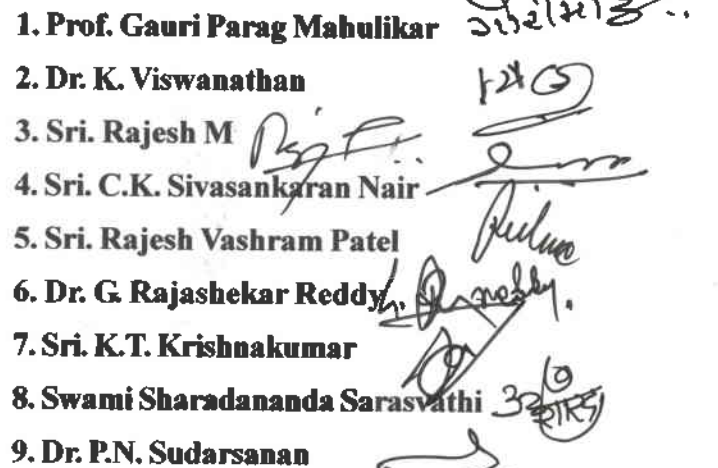 1. Prof. Gauri Parag Mahulikar
2. Dr. K. Viswanathan
3. Sri. Rajesh M
4. Sri. C.K. Sivasankaran Nair
5. Sri. Rajesh Vashram Patel
6. Dr. G. Rajashekar Reddy
7. Sri. K.T. Krishnakumar
8. Swami Sharadananda Sarasvathi
9. Dr. P.N. Sudarsanan